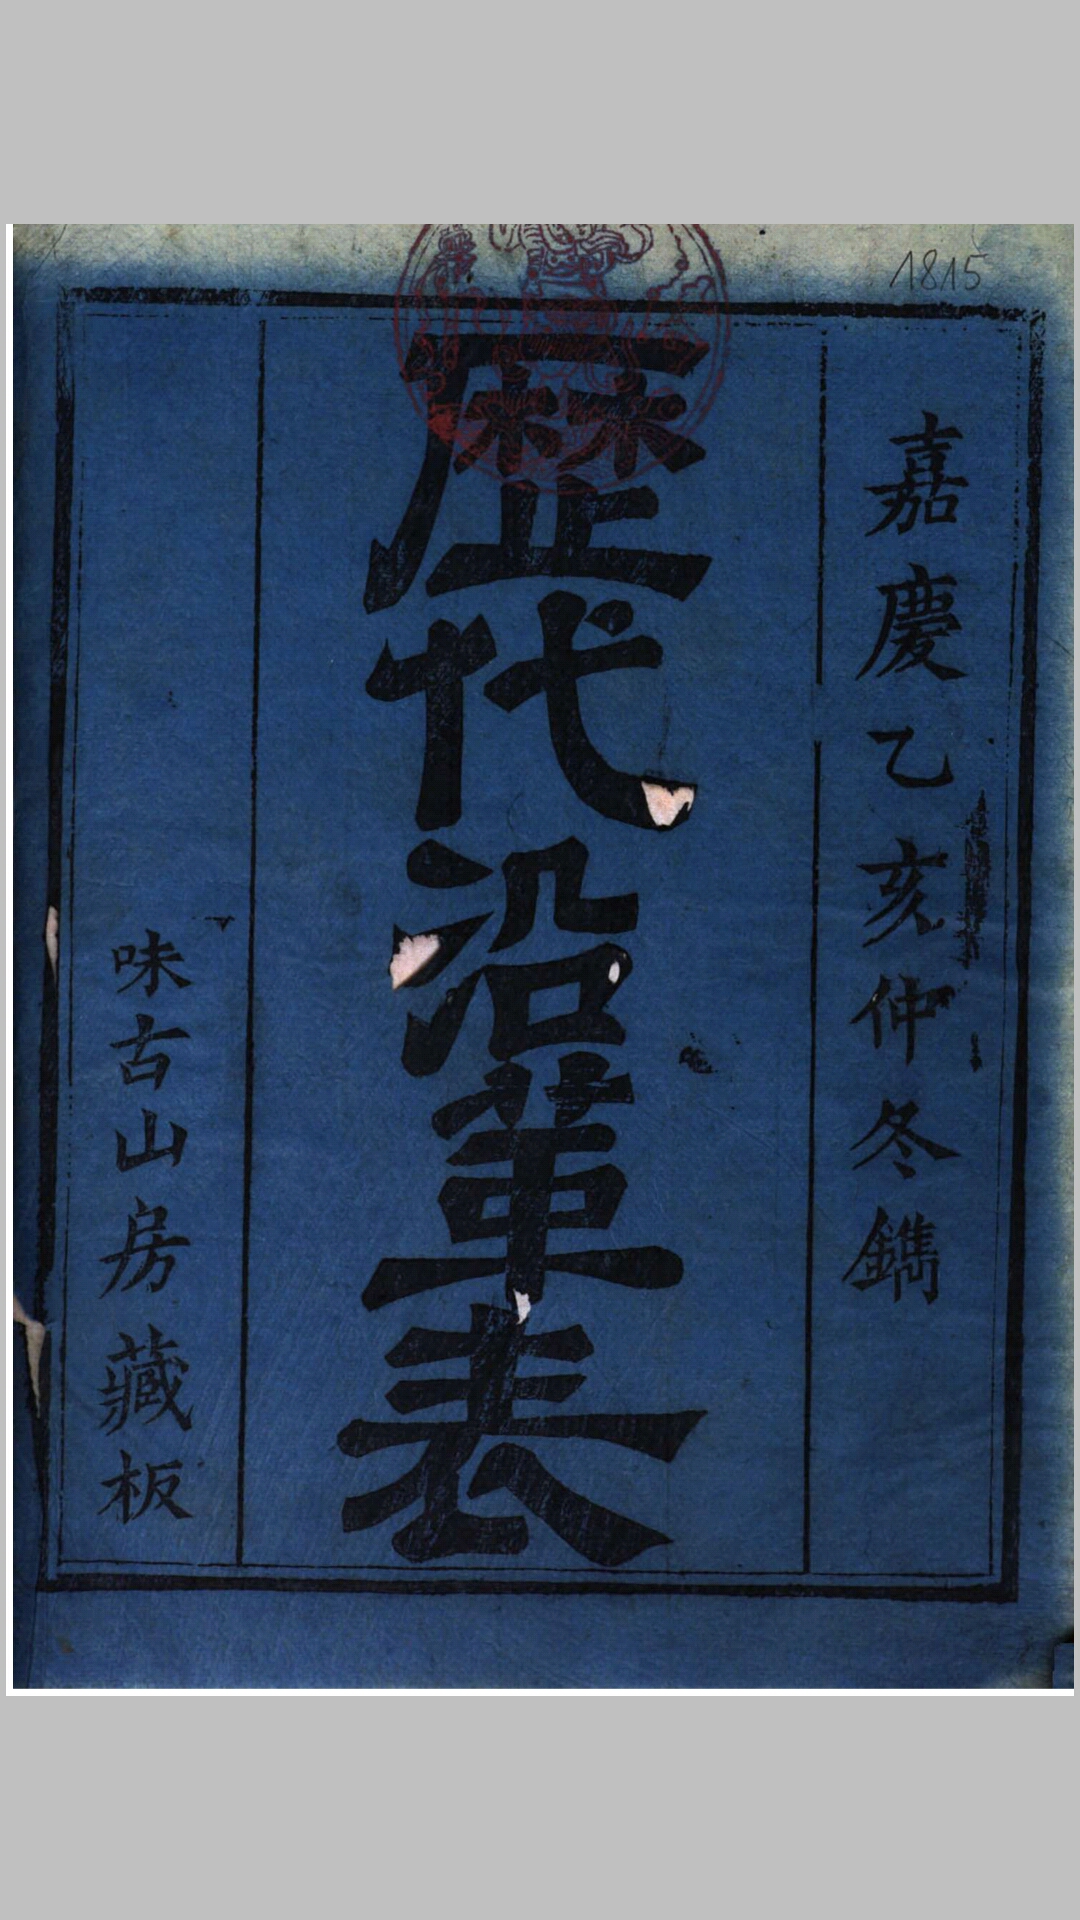 1815
嘉慶乙亥仲冬鐫
歷代沿革表
味古山房藏板